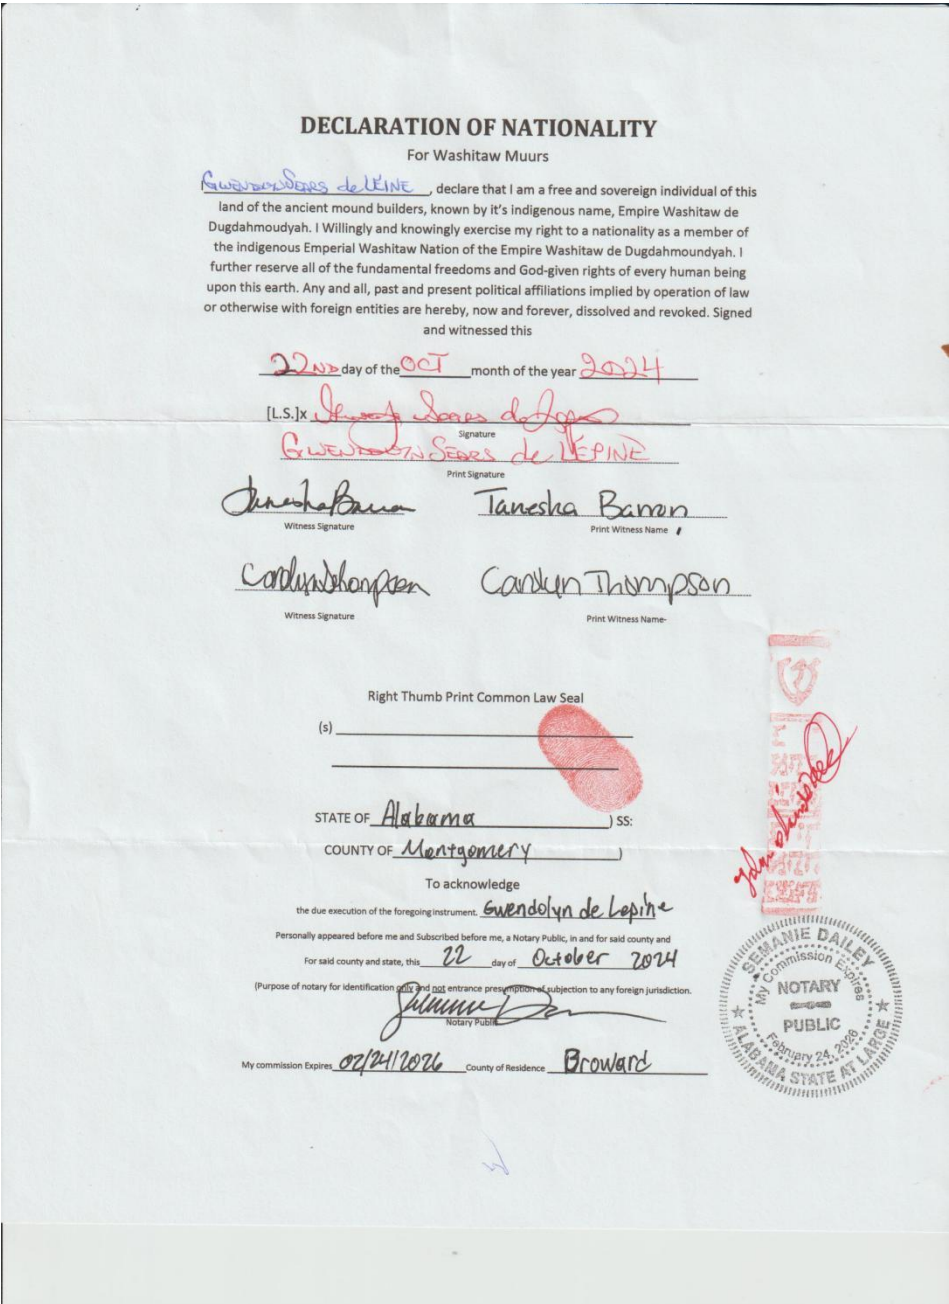 DECLARATION OF NATIONALITY
For Washitaw Muurs
Gwendolyn Sears de LÉPINE, declare that I am a free and sovereign individual of this
land of the ancient mound builders, known by it's indigenous name, Empire Washitaw de
Dugdahmoudyah. I Willingly and knowingly exercise my right to a nationality as a member of
the indigenous Emperial Washitaw Nation of the Empire Washitaw de Dugdahmoundyah. I
further reserve all of the fundamental freedoms and God-given rights of every human being
upon this earth. Any and all, past and present political affiliations implied by operation of law
or otherwise with foreign entities are hereby, now and forever, dissolved and revoked. Signed
and witnessed this
22ND day of the OCT month of the year 2024
[L.S.]x
Signature
GWENDOLYN SEARS de LÉPINE
Print Signature
Tanesha Barron Tanesha Barron
Witness Signature Print Witness Name
Carolyn Thompson Carolyn Thompson
Witness Signature Print Witness Name-
Right Thumb Print Common Law Seal
(s)
STATE OF Alabama ) SS:
COUNTY OF Montgomery )
To acknowledge
the due execution of the foregoing instrument. Gwendolyn de Lepine
Personally appeared before me and Subscribed before me, a Notary Public, in and for said county and
For said county and state, this 22 day of October 2024
(Purpose of notary for identification only and not entrance presumption of subjection to any foreign jurisdiction.
Notary Public
My commission Expires 02/24/2026 County of Residence Broward
SEMANIE DAILEY
My Commission Expires
NOTARY
PUBLIC
February 24, 2026
ALABAMA STATE AT LARGE